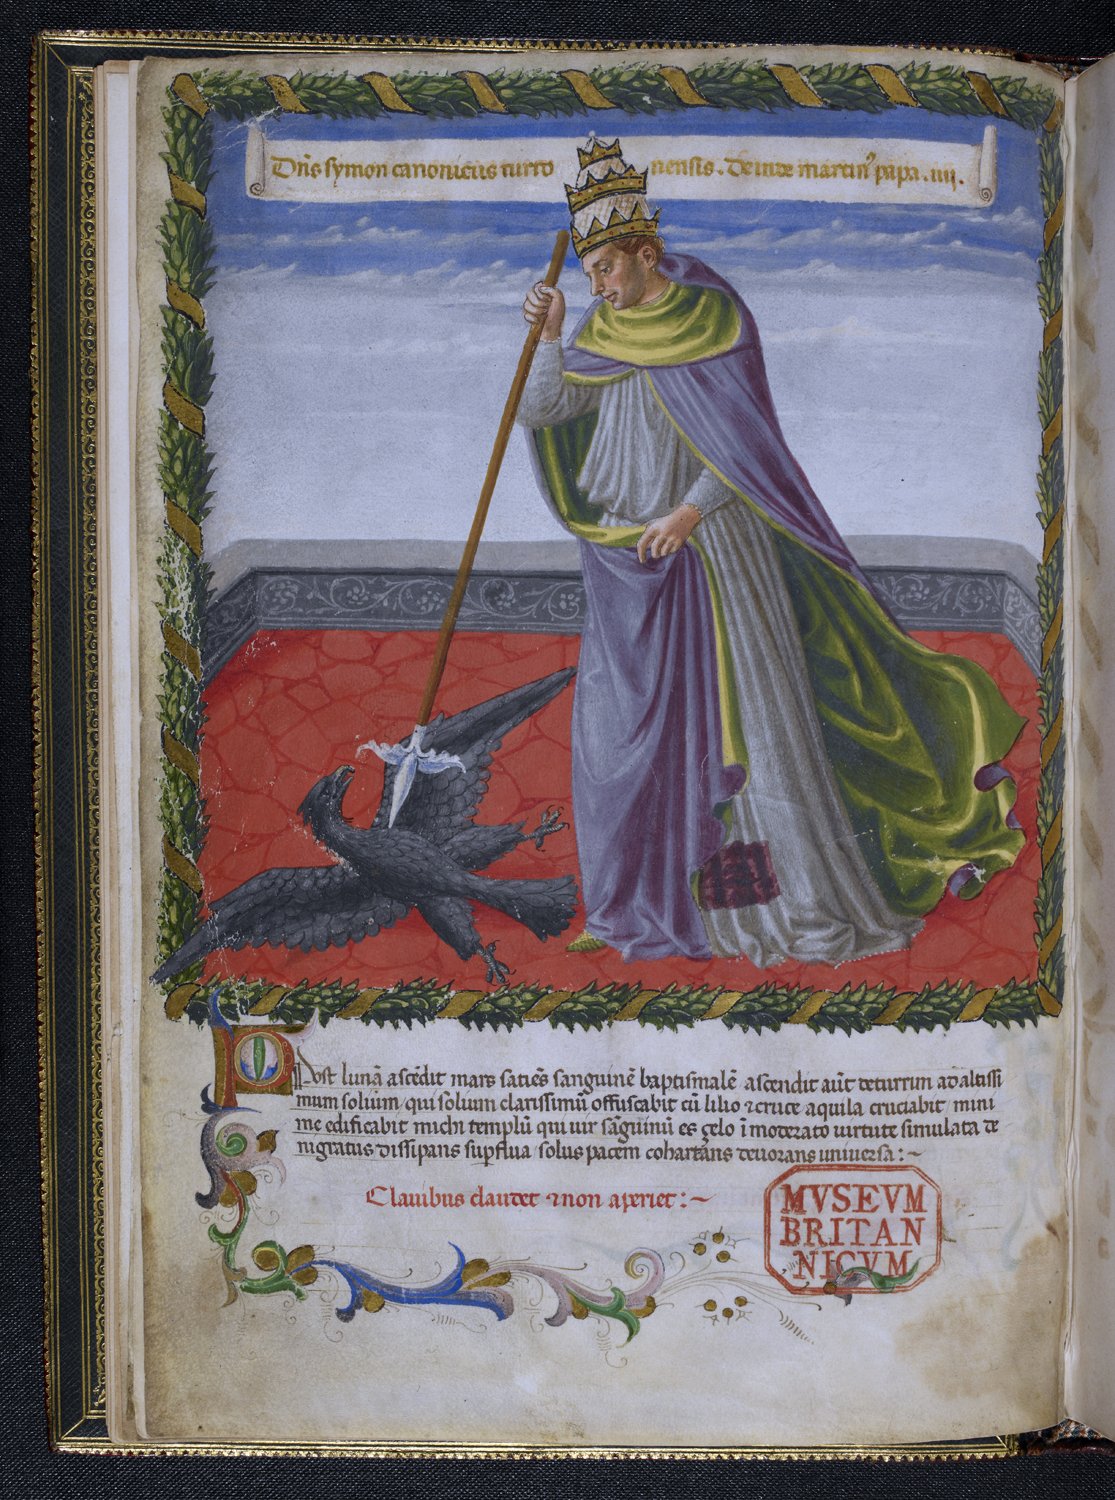 Dn̄s symon canonicus turro nensis. Deinde martin᾽ papa. iiii.
Post lunā ascēdit mars saties̄ sanguinē baptismalē ascendit aūt deturrim ad altissi
mum solium / qui solium clarissimū offuscabit cū lilio ⁊ cruce aquila cruciabit / mini
me edificabit michi templū qui uir sāguinū es zelo ī moderato uirtute simulata de
nigratus dissipans supflua / solus pacem devorans universa : ~
Clauibus claudet ⁊ non aperiet : ~
MVSEVM
BRITAN
NICVM